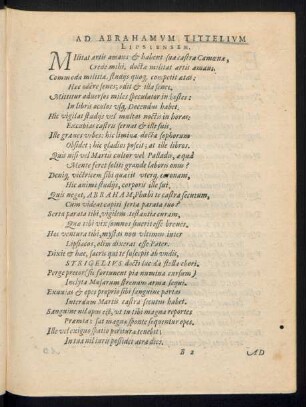 AD ABRAHAMVM TITZELIVM
LIPSIENSEM.
Militat artis amans & habent sua castra Camœnæ,
Crede mihi, docta militat artis amans.
Commoda militiæ, studijs quoq; competit ætas:
Hac odere senes: odit & ista senex.
Mittitur adversos miles speculator in hostes:
In libris oculos usq; Decendus habet.
Hic vigilat studijs vel multas nocte in horas:
Excubias castris servat & iste suis.
Ille graves urbes: hic limina docta sophorum
Obsidet: hic gladios poscit: at ille libros.
Quis nisi vel Martis cultor vel Palladis, æqua
Mente feret soliti grande laboris onus?
Deniq; victricem sibi quærit uterq; coronam,
Hic animi studijs, corporis ille sui.
Quis neget, ABRAHAM, Phœbi te castra secutum,
Cum videat capiti serta parata tuo?
Serta parata tibi, vigilem testantia curam,
Qua tibi vix somnos sueverit esse breves.
Hæc ventura tibi, mystas non ultimus inter
Lipsiacos, olim dixerat esse Pater.
Dixit & hæc, sacri qui te suscepit ab undis,
STRIGELIVS docti stella chori.
Perge precor (sic fortunent pia numina cursum)
Inclyta Musarum strenuus arma sequi.
Exuvias & opes proprio sibi sanguine partas
Interdum Martis castra secutus habet.
Sanguine nil opus est, ut tu tibi magna reportes
Præmia: sat magnæ sponte sequentur opes.
Ille vel exiguo spatio potitur & tenebit:
In tua nil juris possidet atra dies.
B 2 AD